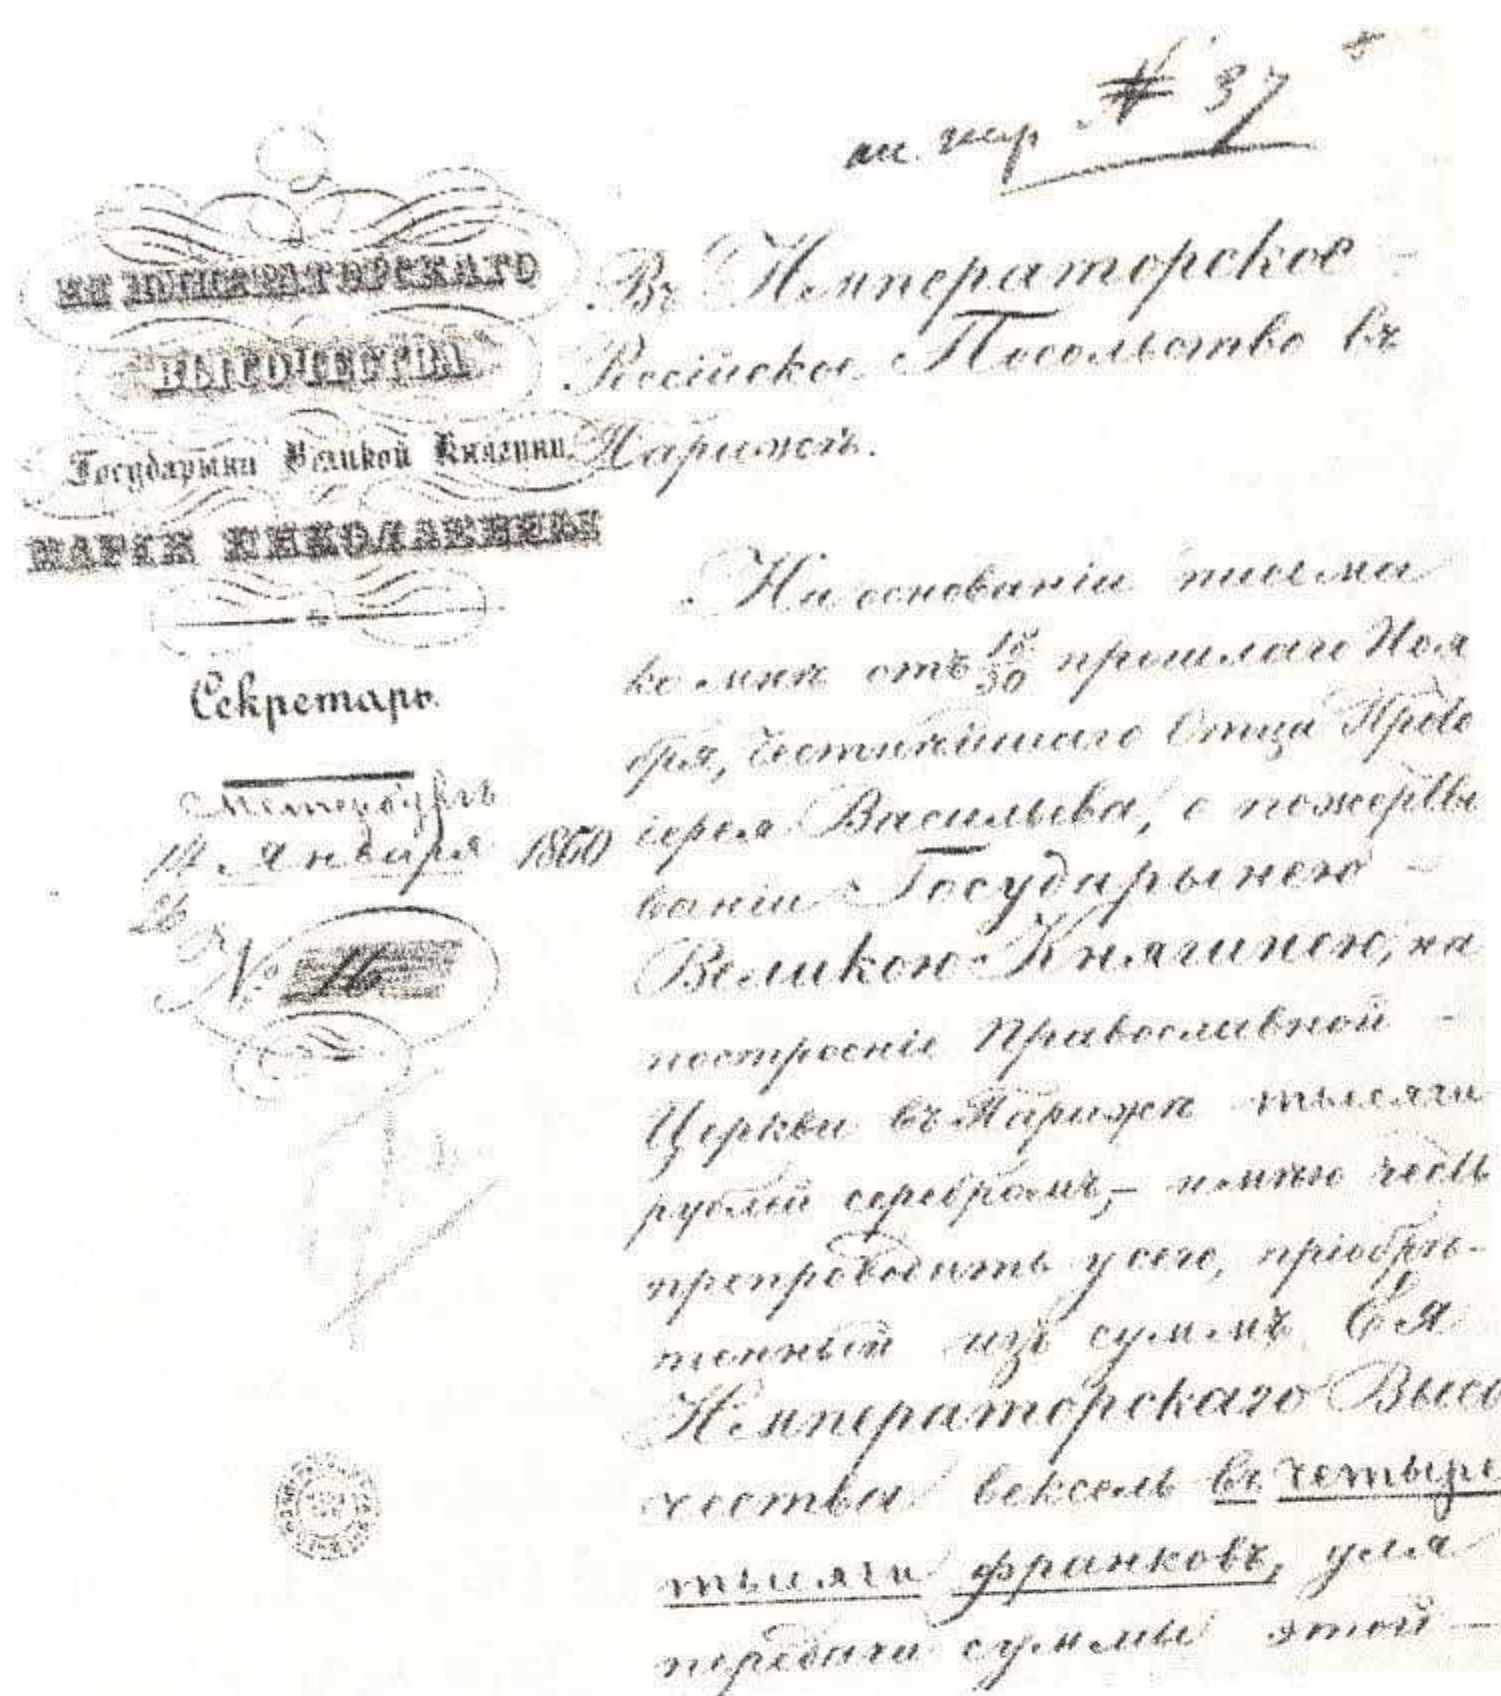 № 37
ЕЯ ИМПЕРАТОРСКАГО
ВЫСОЧЕСТВА
Государыни Великой Княгини
МАРІИ НИКОЛАЕВНЫ
Секретарь.
С. Петербургъ
14 Января 1860
26
№ 16
Въ Императорское
Россійское Посольство въ
Парижѣ.
На основаніи письма
ко мнѣ отъ 18/30 прошлаго Ноя
бря, Честнѣйшаго Отца Прото
іерея Васильева, о пожертво
ваніи Государынею
Великою Княгинею, на
построеніе Православной
Церкви въ Парижѣ тысячи
рублей серебромъ, – имѣю честь
препроводить у сего, пріобрѣ-
тенный изъ суммъ Ея
Императорскаго Высо
чества вексель въ четыре
тысячи франковъ, для
передачи суммы этой —